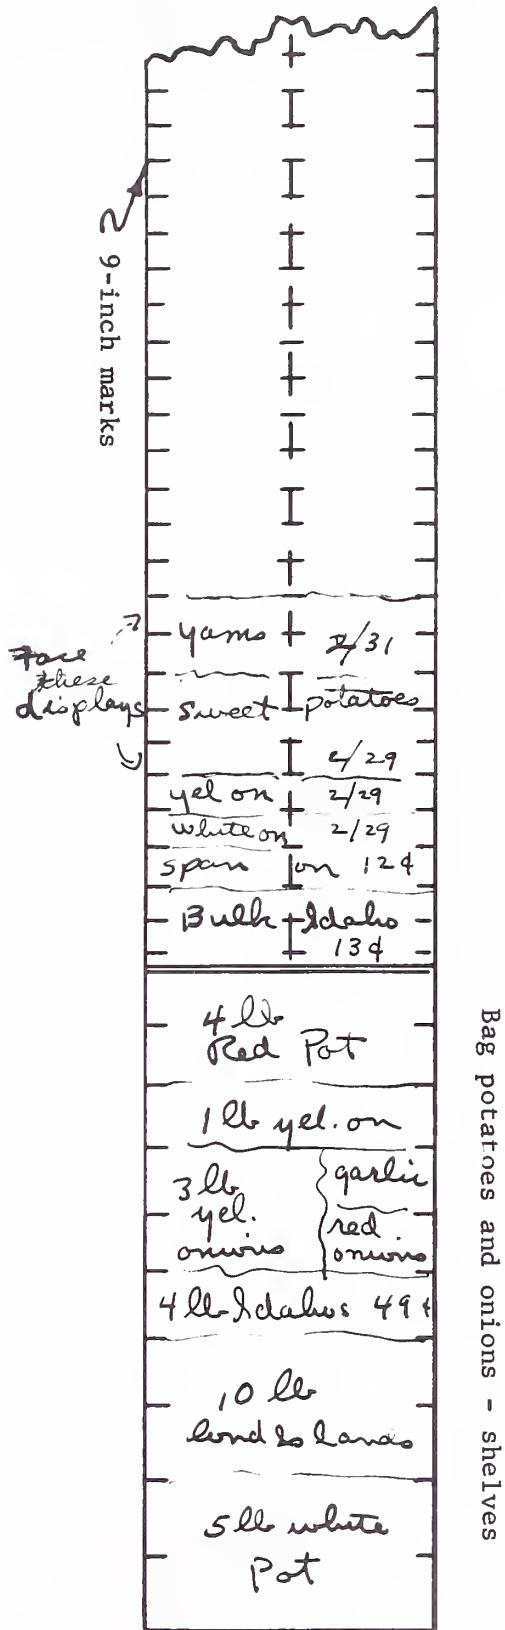 9-inch marks
yams 2/31
Face
these
displays
sweet potatoes
2/29
yel on 2/29
white on 2/29
span on 12¢
Bulk Idaho
13¢
4 lb
Red Pot
1 lb yel. on
3 lb
yel.
onions
garlic
red
onions
4 lb Idahos 49¢
10 lb
5 lb white
Pot
Bag potatoes and onions - shelves